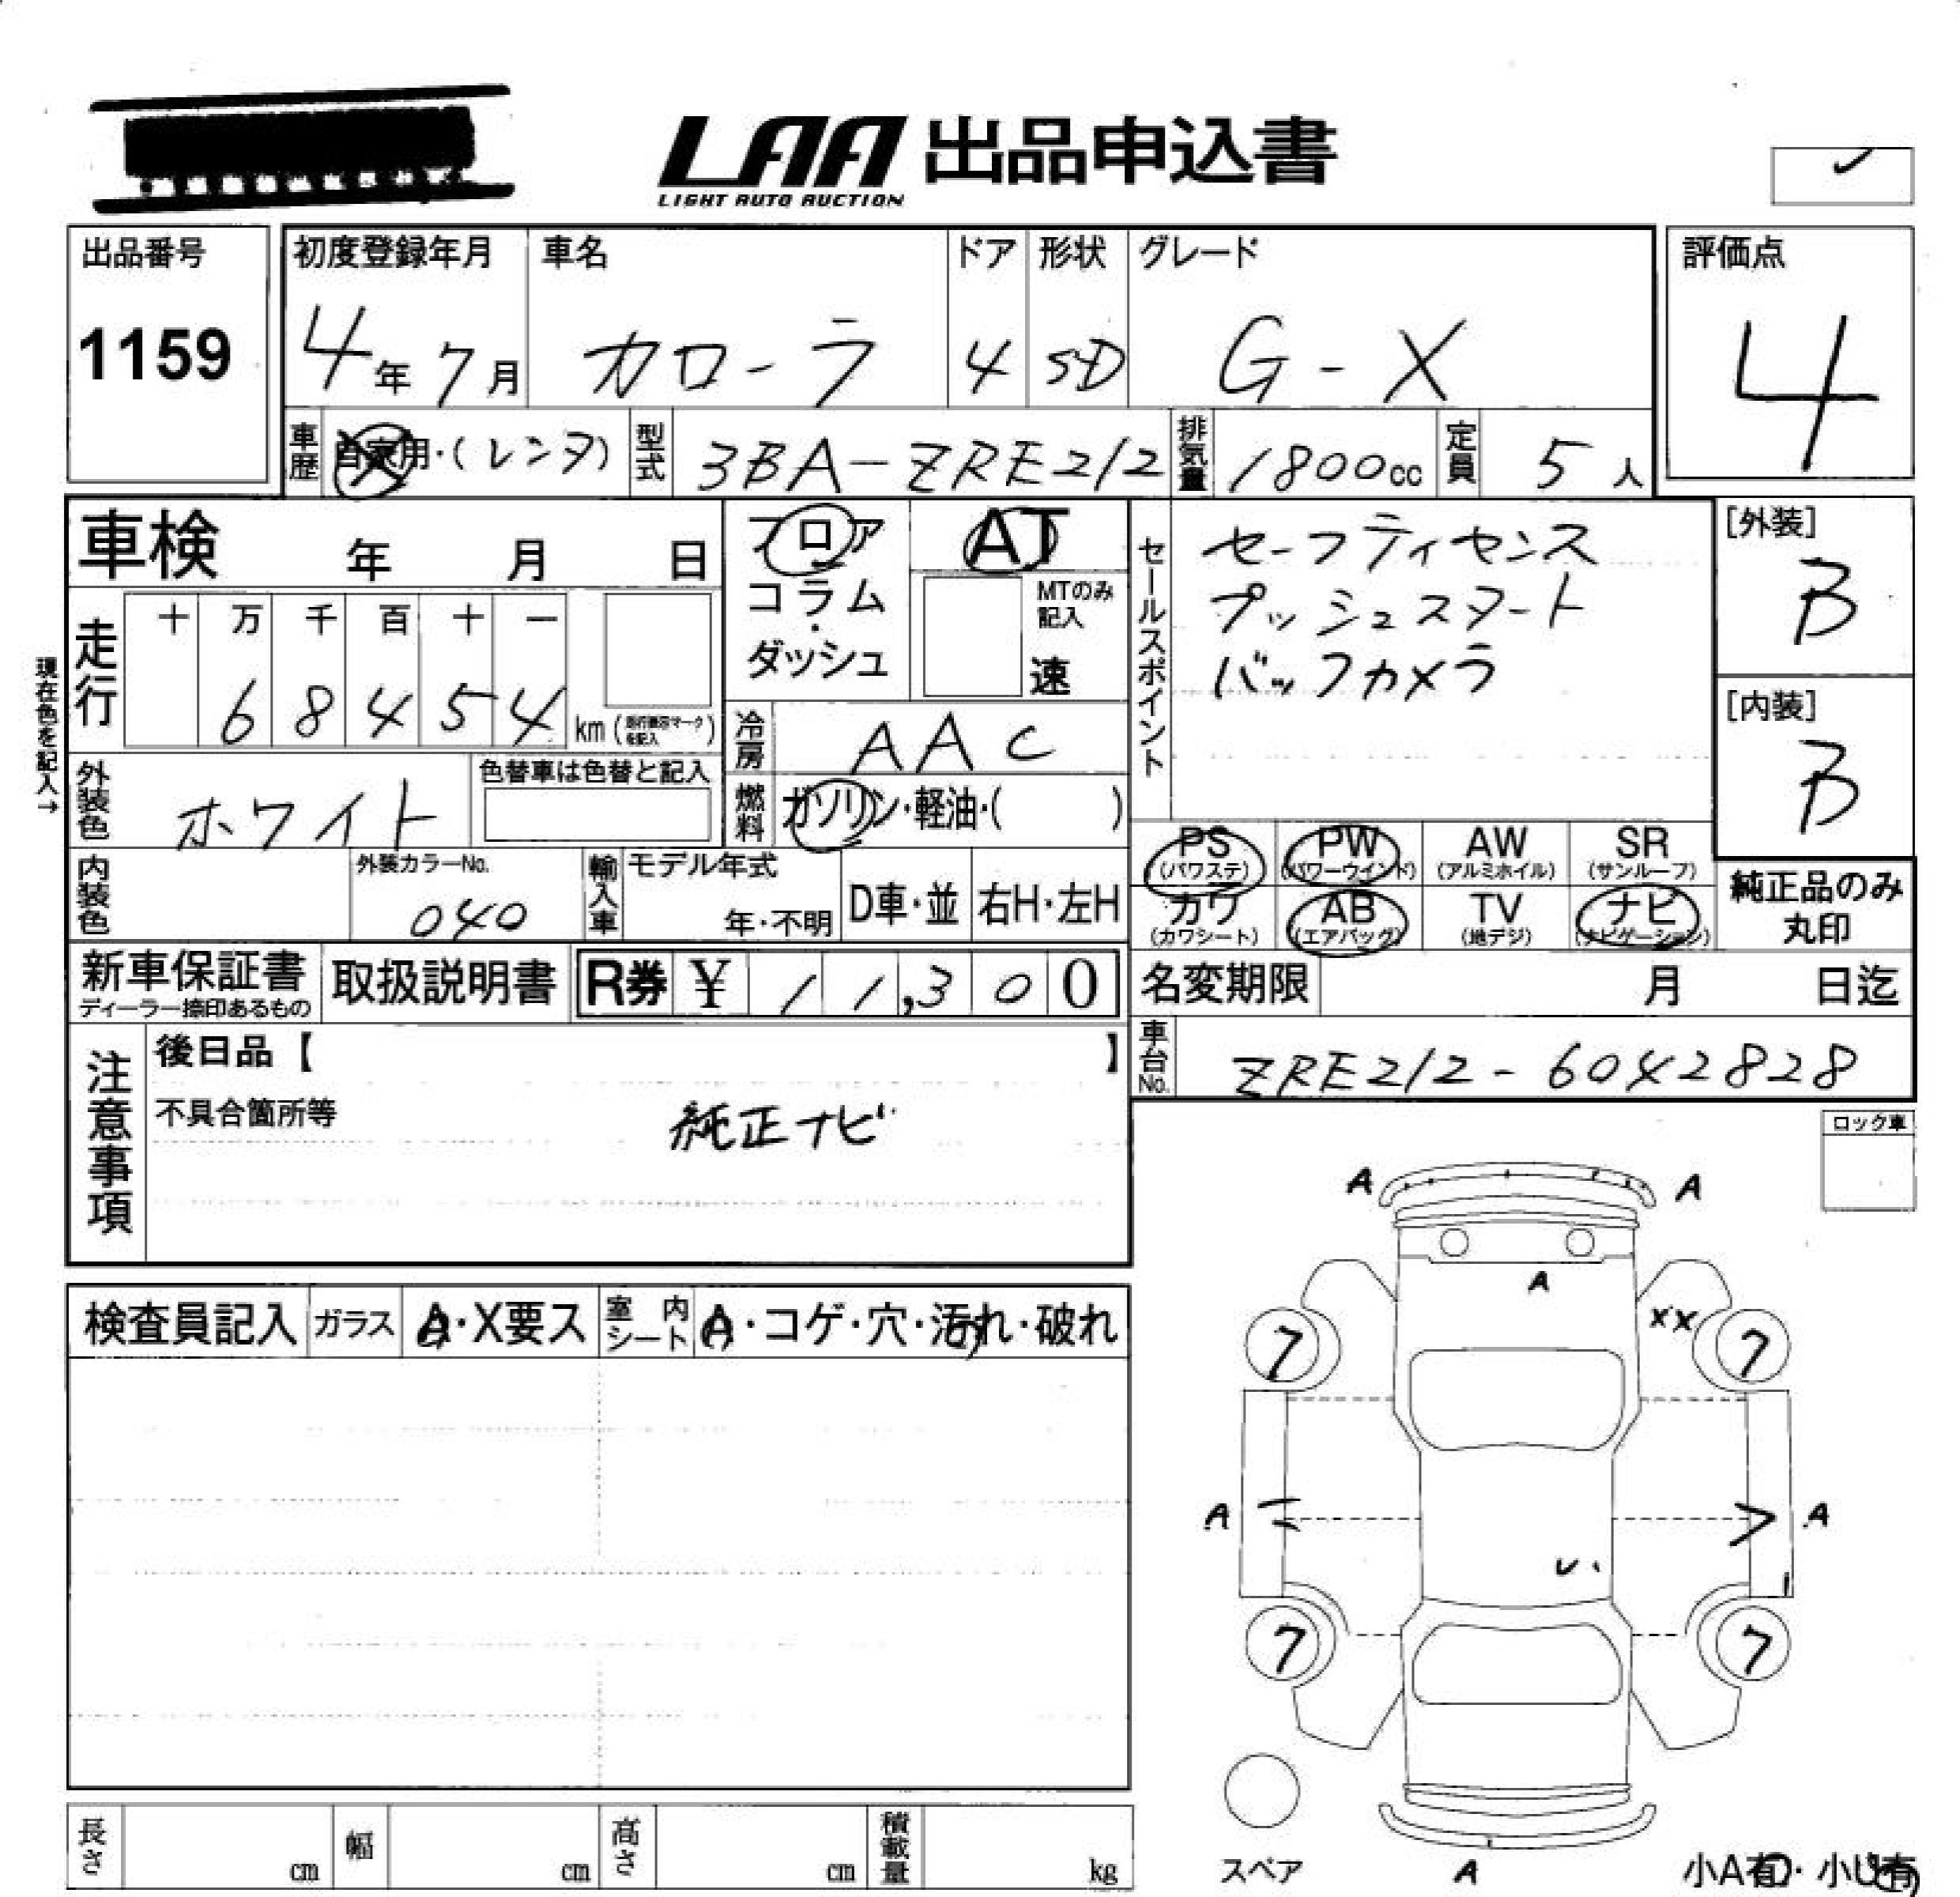 LAA 出品申込書
LIGHT AUTO AUCTION
出品番号
1159
初度登録年月
4年7月
車名
カローラ
ドア
4
形状
SD
グレード
G-X
評価点
4
車歴
自家用・(レンタ)
型式
3BA-ZRE212
排気量
1800cc
定員
5人
車検 年 月 日
フロア
コラム
・
ダッシュ
AT
MTのみ
記入
速
セールスポイント
セーフティセンス
プッシュスタート
バックカメラ
[外装]
B
[内装]
B
現在色を記入→
走行
十 万 千 百 十 一
6 8 4 5 4 km
冷房
AAC
外装色
ホワイト
色替車は色替と記入
燃料
ガソリン・軽油・( )
PS
(パワステ)
PW
(パワーウインド)
AW
(アルミホイル)
SR
(サンルーフ)
カワ
(カワシート)
AB
(エアバッグ)
TV
(地デジ)
ナビ
(ナビゲーション)
純正品のみ
丸印
内装色
外装カラーNo.
040
輸入車
モデル年式
年・不明
D車・並
右H・左H
新車保証書
ディーラー捺印あるもの
取扱説明書
R券 ¥ 11,300
名変期限 月 日迄
車台No.
ZRE212-6042828
注意事項
後日品【 】
不具合箇所等
純正ナビ
ロック車
検査員記入
ガラス
A・X要ス
室内
シート
A・コゲ・穴・汚れ・破れ
A
A
A
XX
7
7
A
A
7
7
スペア
A
小A有・小U有
長さ cm
幅 cm
高さ cm
積載量 kg